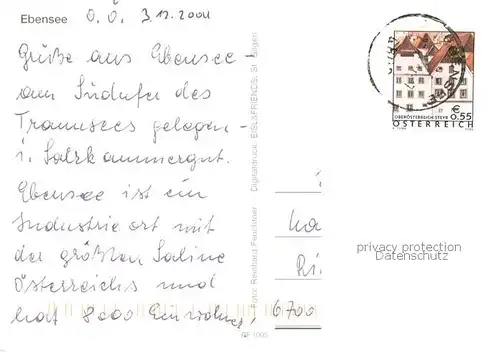 Ebensee O.Ö. 3.12.2004
Grüße aus Ebensee -
am Südufer des
Traunsees gelegen -
i. Salzkammergut.
Ebensee ist ein
Industrieort mit
der größten Saline
Österreichs und
hat 8000 Einwohner!
Foto: Reinhard Feuchtner
Digitaldruck: EISL&FRIENDS, St. Gilgen
GF 1005
OBERÖSTERREICH STEYR
€ 0,55
ÖSTERREICH
privacy protection
Datenschutz
6700